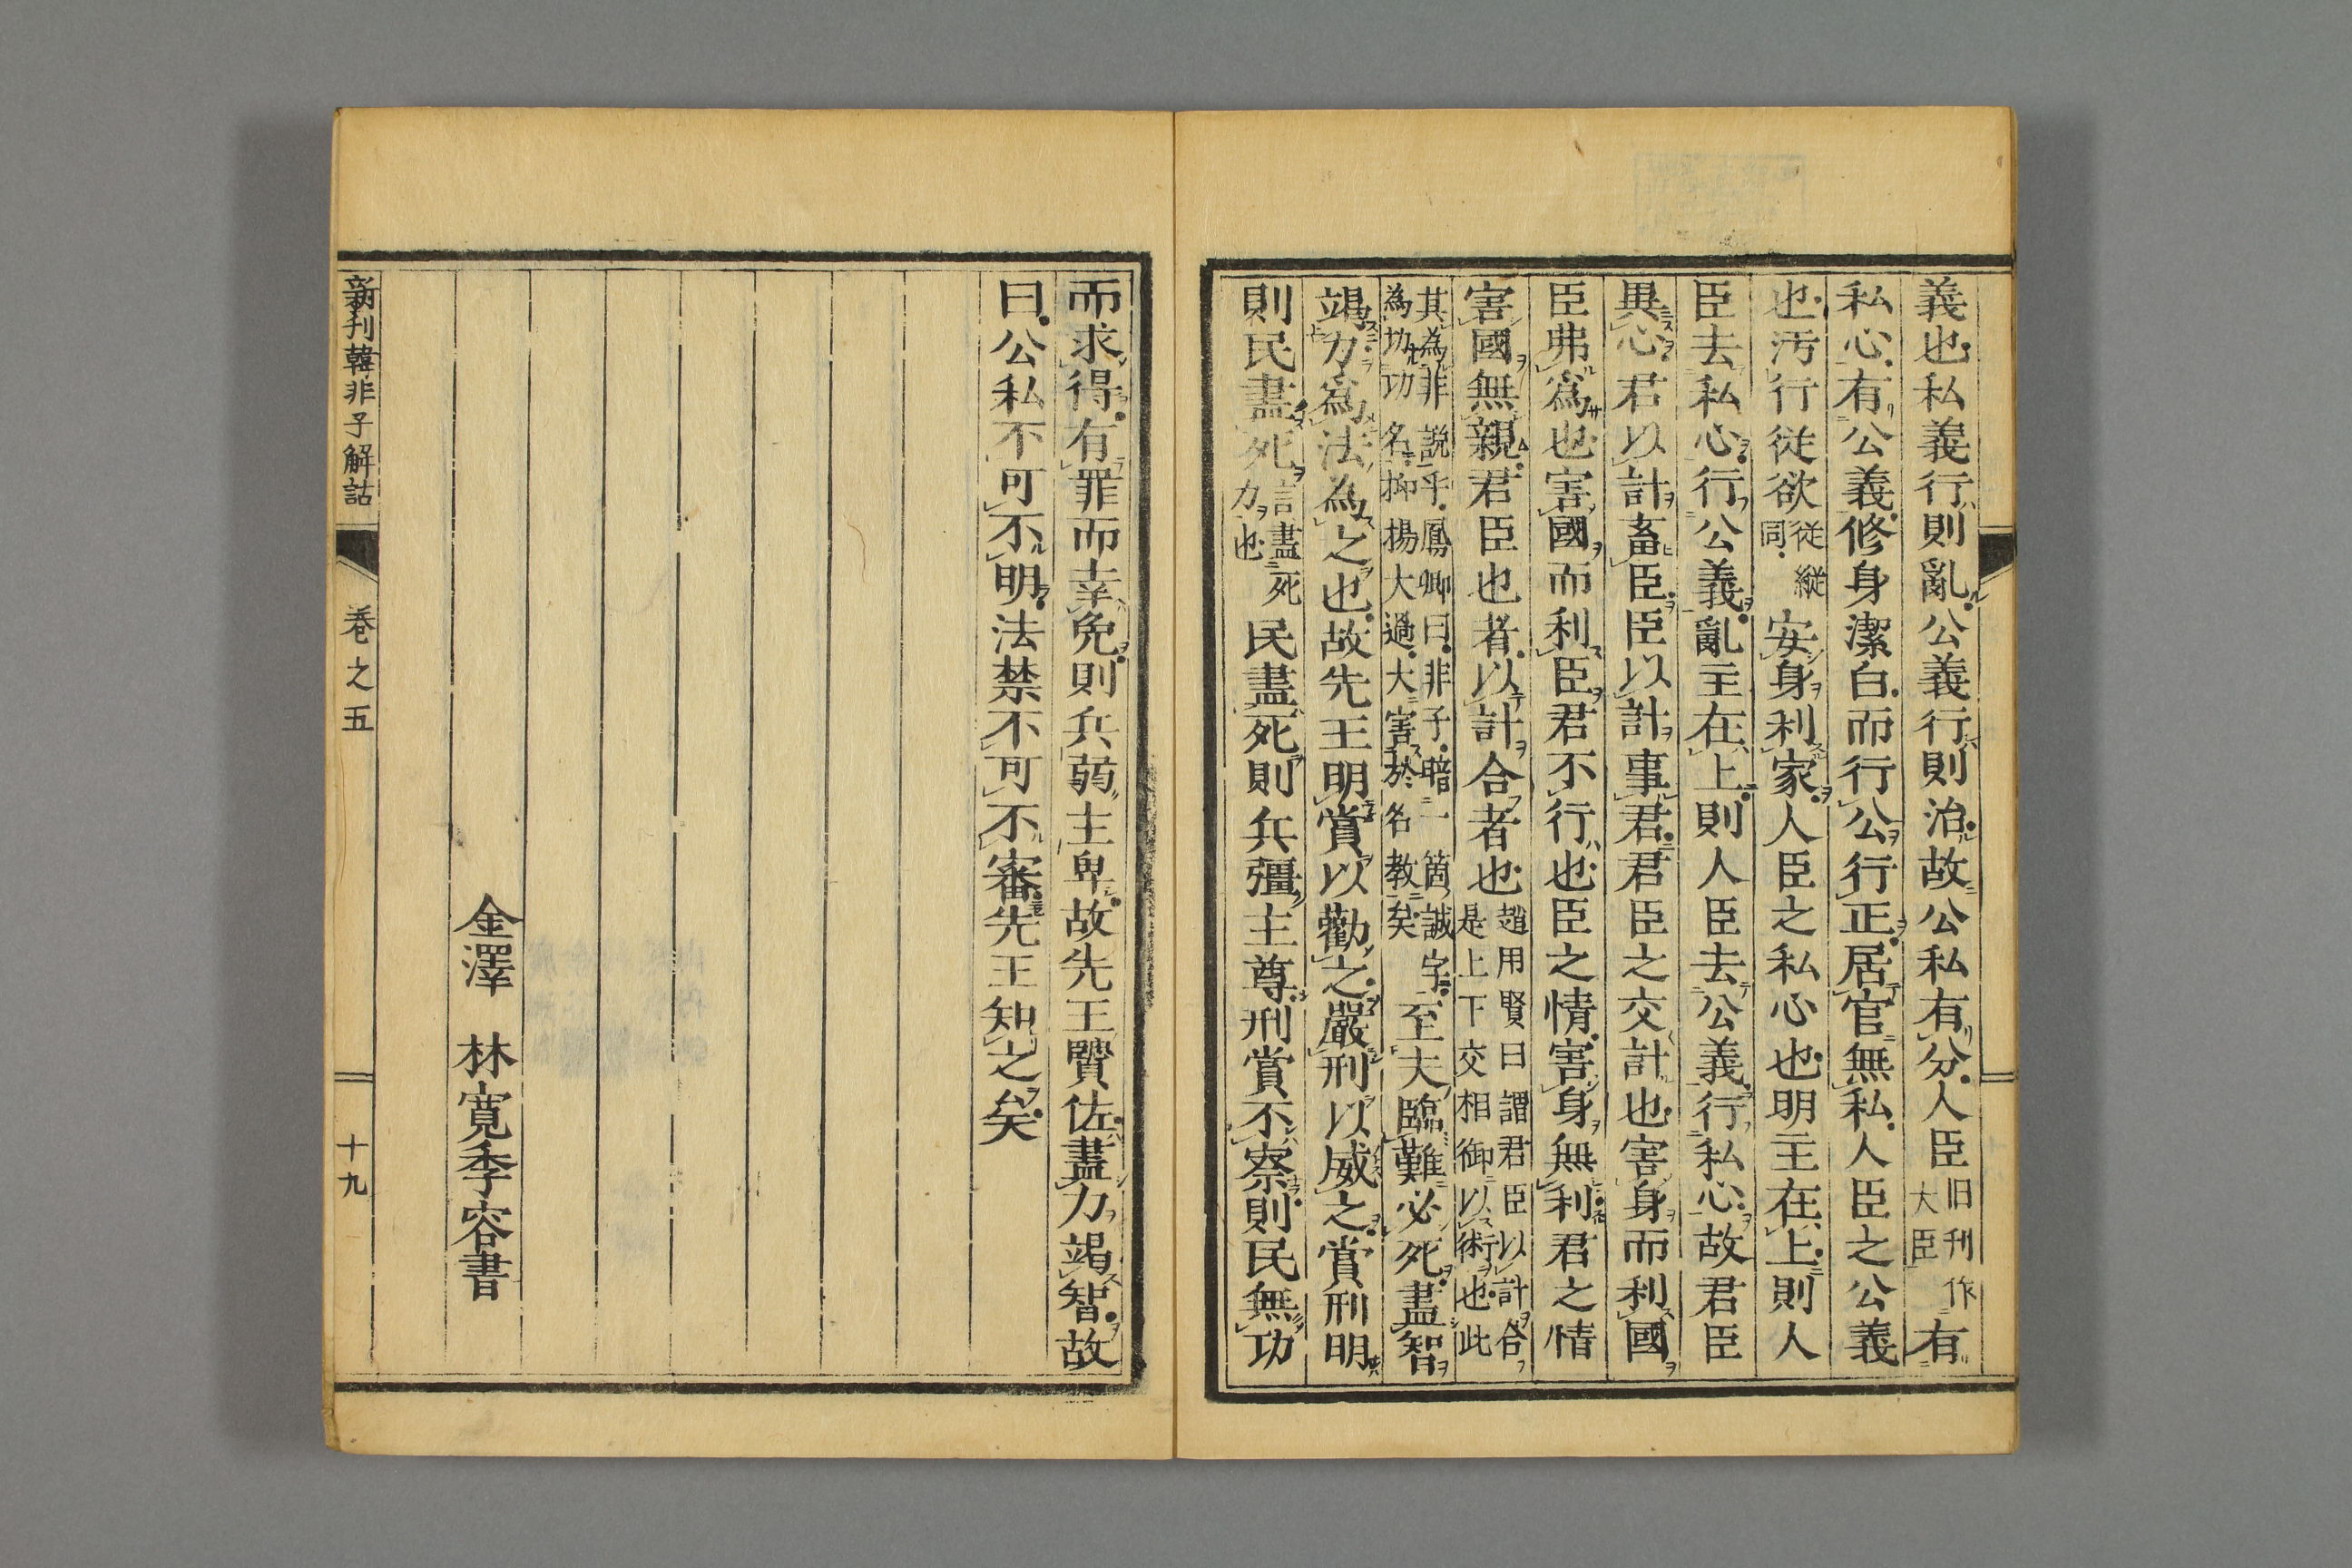 義也私義行則亂公義行則治故公私有分人臣旧刊作大臣有
私心有公義修身潔白而行公行正居官無私人臣之公義
也汚行従欲従縱同安身利家人臣之私心也明主在上則人
臣去私心行公義亂主在上則人臣去公義行私心故君臣
異心君以計畜臣臣以計事君君臣之交計也害身而利國
臣弗爲也害國而利臣君不行也臣之情害身無利君之情
害國無親君臣也者以計合者也趙用賢曰謂君臣以計合是上下交相御以術也此
其為非說乎鳳卿曰非子暗一箇誠字為功功名抑揚大過大害於名教矣至夫臨難必死盡智
竭力爲法為之也故先王明賞以勸之嚴刑以威之賞刑明
則民盡死言盡死力也民盡死則兵彊主尊刑賞不察則民無功
而求得有罪而幸免則兵弱主卑故先王賢佐盡力竭智故
曰公私不可不明法禁不可不審先王知之矣
金澤 林寬季容書
新刊韓非子解詁 卷之五 十九